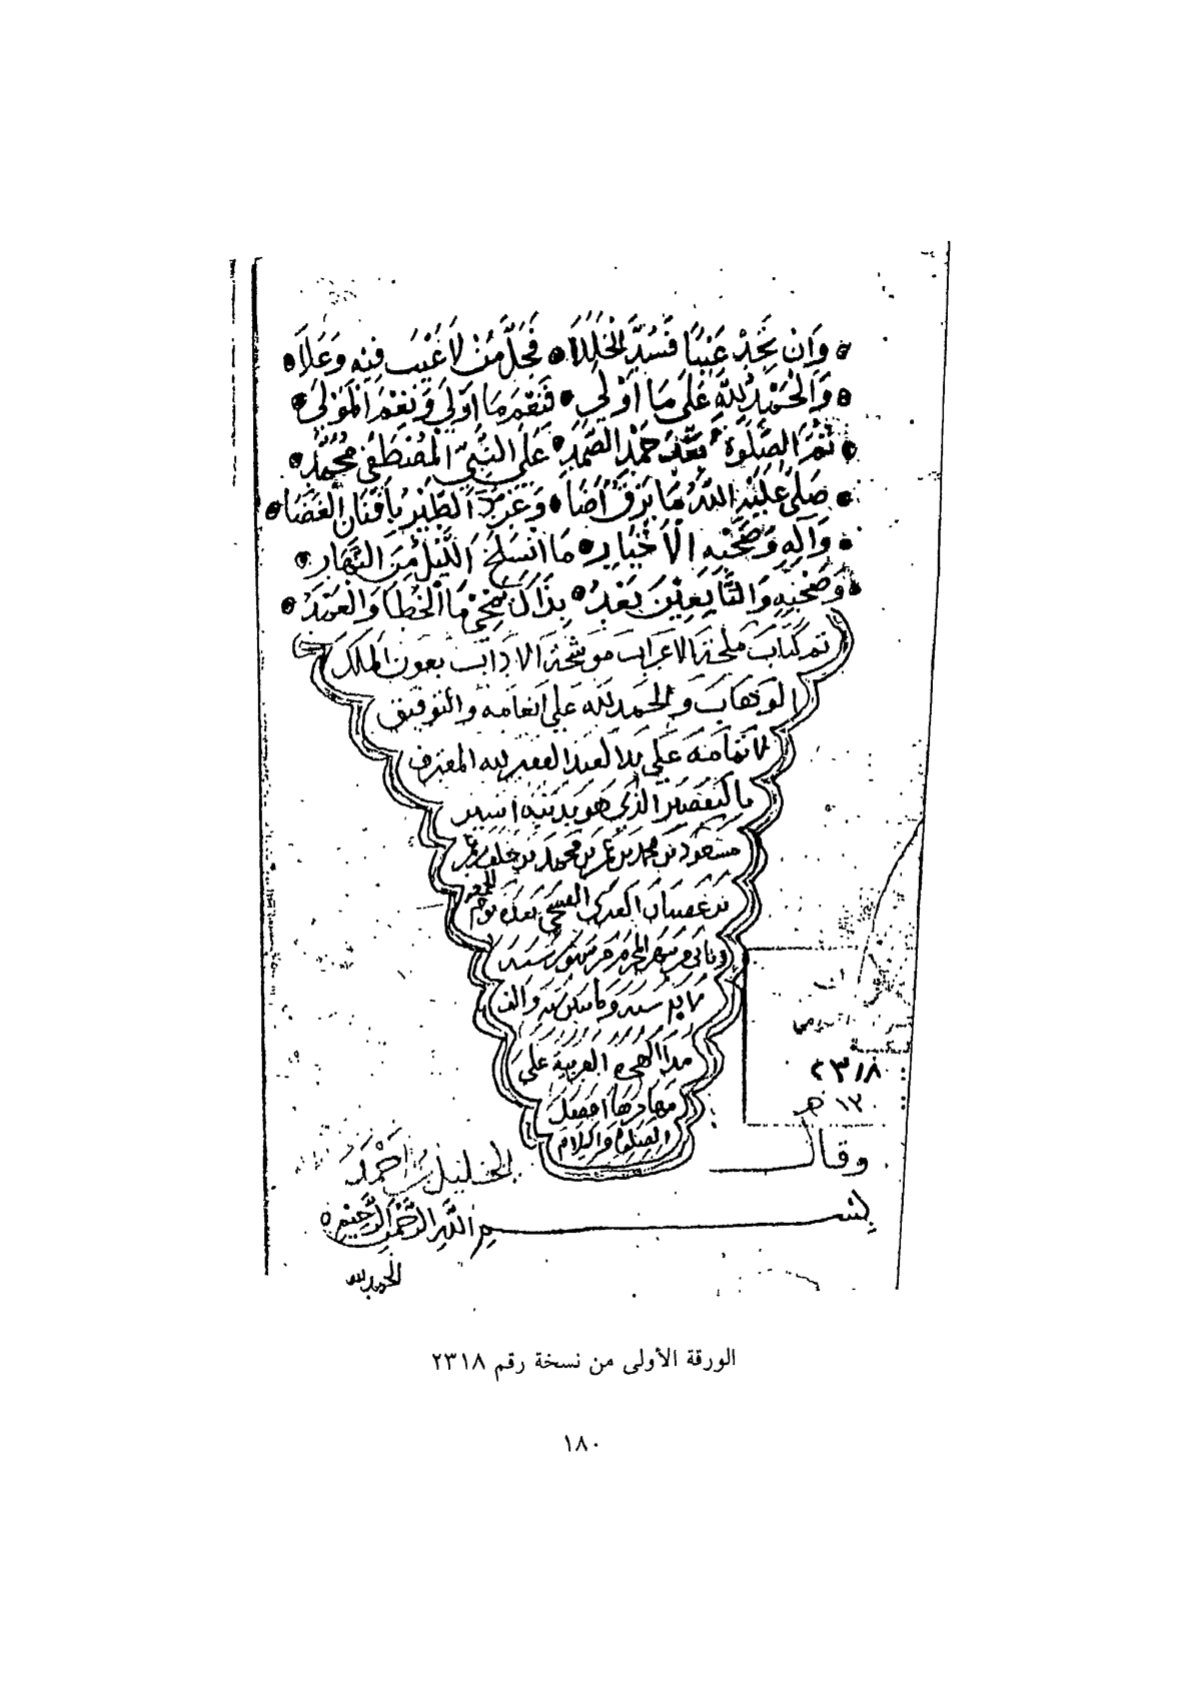 وَاِنْ تَجِدْ عَيْبًا فَسُدَّ الْخَلَلَا • فَجَلَّ مَنْ لَا عَيْبَ فِيْهِ وَعَلَا
وَالْحَمْدُ لِلّٰهِ عَلَى مَا اَوْلَى • فَنِعْمَ مَا اَوْلَى وَنِعْمَ الْمَوْلَى
ثُمَّ الصَّلٰوةُ بَعْدَ حَمْدِ الصَّمَدِ • عَلَى النَّبِيِّ الْمُصْطَفَى مُحَمَّدِ
صَلَّى عَلَيْهِ اللّٰهُ مَا بَرْقٌ اَضَا • وَغَرَّدَ الطَّيْرُ بِاَفْنَانِ الْغَضَا
وَآلِهِ وَصَحْبِهِ الْاَخْيَارِ • مَا انْسَلَخَ اللَّيْلُ مِنَ النَّهَارِ
وَصَحْبِهِ وَالتَّابِعِيْنَ بَعْدُ • بِذَاكَ يُمْحَى مَا الْخَطَا وَالْعَمْدُ
تم كتاب ملحة الاعراب موشحة الاداب بعون الملك
الوهاب والحمد لله على انعامه والتوفيق
لاتمامه على يد العبد الفقير لله المعترف
بالتقصير الذي هو بذنبه اسير
مسعود بن محمد بن عمر بن محمد بن خلف بن
يوم
وثاني شهر المحرم من شهور سنة
سنة وألف
هذا الهجرة العربية على
مهاجرها افضل
الصلوة والسلام
٢٣١٨
١٣ هـ
وقال الخليل بن احمد
بسم الله الرحمن الرحيم
الحمد لله
الورقة الأولى من نسخة رقم ٢٣١٨
١٨٠